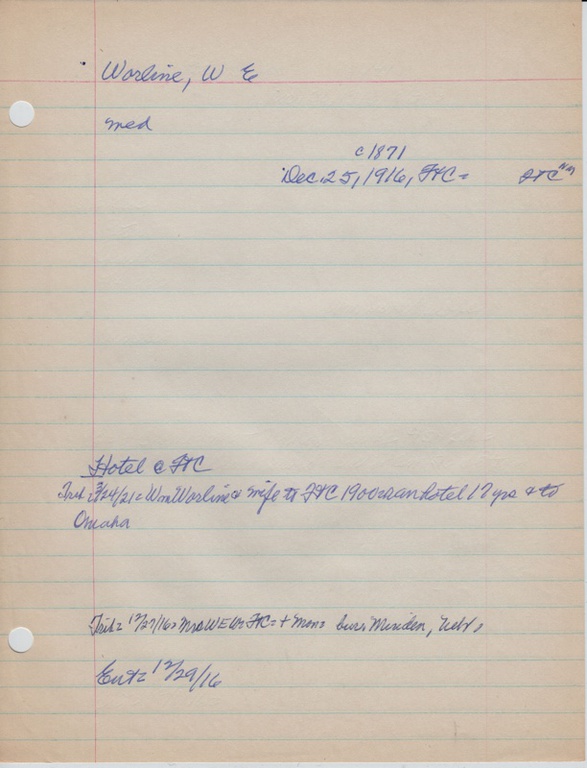 Worline, W E
med
c 1871
Dec. 25, 1916, FtC = FtC
Hotel @ FtC
Trib = 3/24/21 = Wm Worline & wife to FtC 1900 = ran hotel 17 yrs & to
Omaha
Trib = 12/27/16 = Mrs WE W= FtC = + Mon = bur = Minden, Nebr =
Ent = 12/29/16